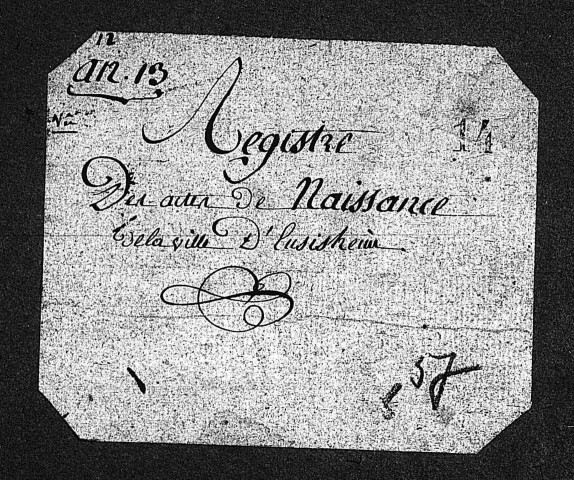 12
an. 13
N.°
Registre
14
Des actes de Naissance
de la ville d'Ensisheim
57